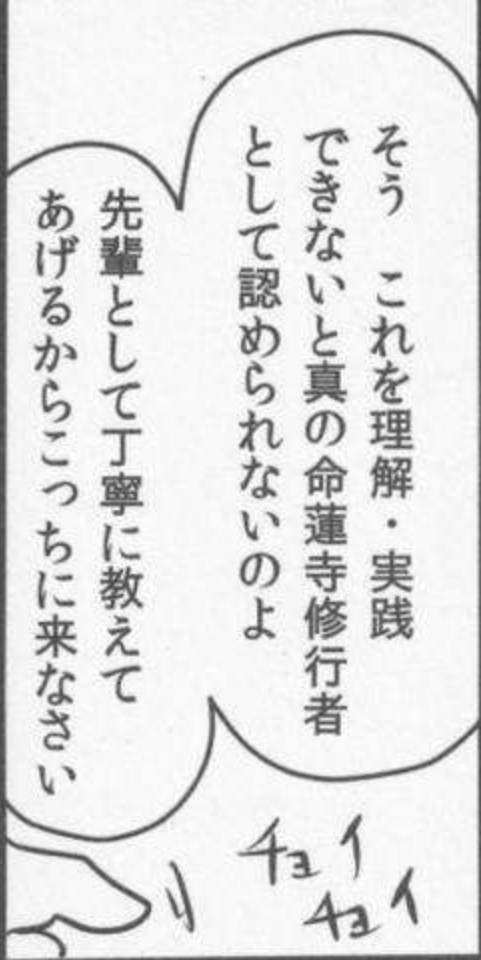 そう　これを理解・実践
できないと真の命蓮寺修行者
として認められないのよ
先輩として丁寧に教えて
あげるからこっちに来なさい
チョイ
チョイ